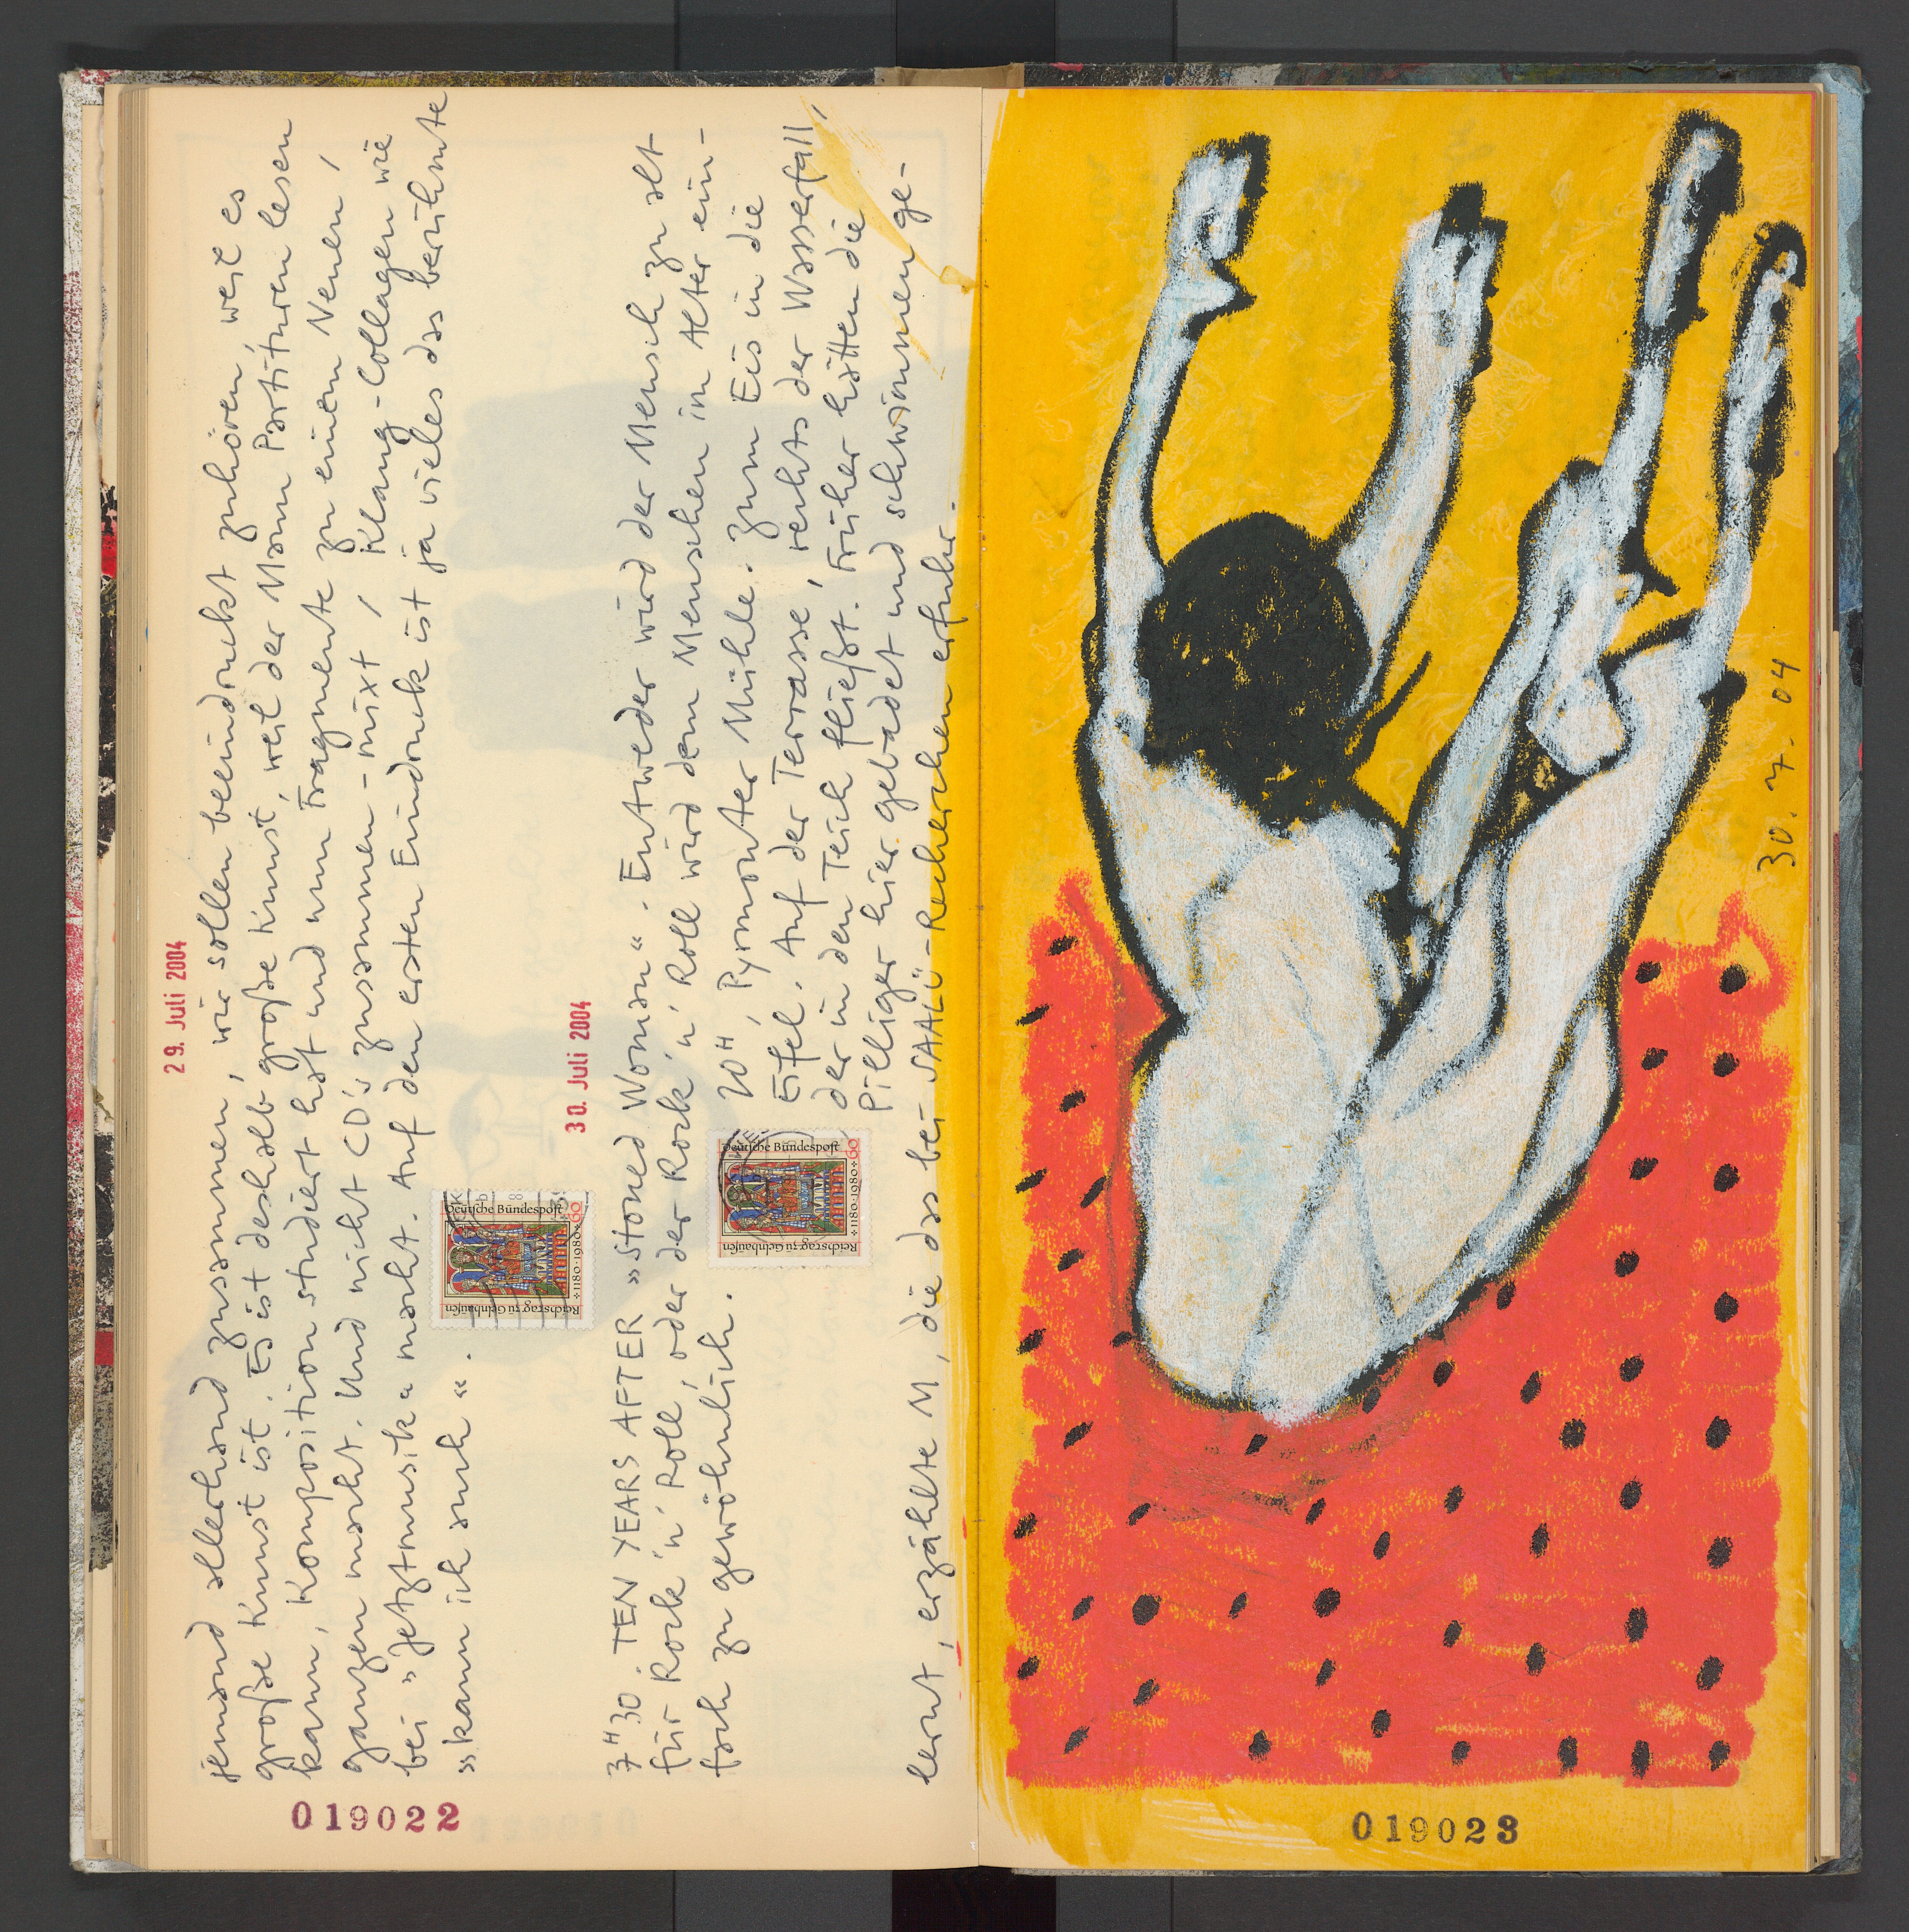 29. Juli 2004
jemand allerhand zusammen, wir sollen beeindruckt zuhören, weil es
große Kunst ist. Es ist deshalb große Kunst, weil der Mann Partituren lesen
kann, Komposition studiert hat und nun Fragmente zu einem Neuen,
ganzen macht. Und nicht CD's zusammen-mixt, Klang-Collagen wie
bei "Jetztmusik" macht. Auf den ersten Eindruck ist ja vieles das berühmte
»kann ich auch«.
Deutsche Bundespost
60
1180·1980
Reichstag zu Gelnhausen
30. Juli 2004
7H30. TEN YEARS AFTER »Stoned Woman«. Entweder wird der Mensch zu alt
für Rock 'n' Roll, oder der Rock 'n' Roll wird dem Menschen im Alter ein-
fach zu gewöhnlich.
Deutsche Bundespost
60
1180·1980
Reichstag zu Gelnhausen
20H, Pyrmonter Mühle. Zum Eis in die
Eifel. Auf der Terrasse, rechts der Wasserfall,
der in den Teich fließt. Früher hätten die
Pilliger hier gebadet und schwimmen ge-
lernt, erzählte M, die das bei SAALÜ-Recherchen erfuhr.
019022
30.7.04
019023